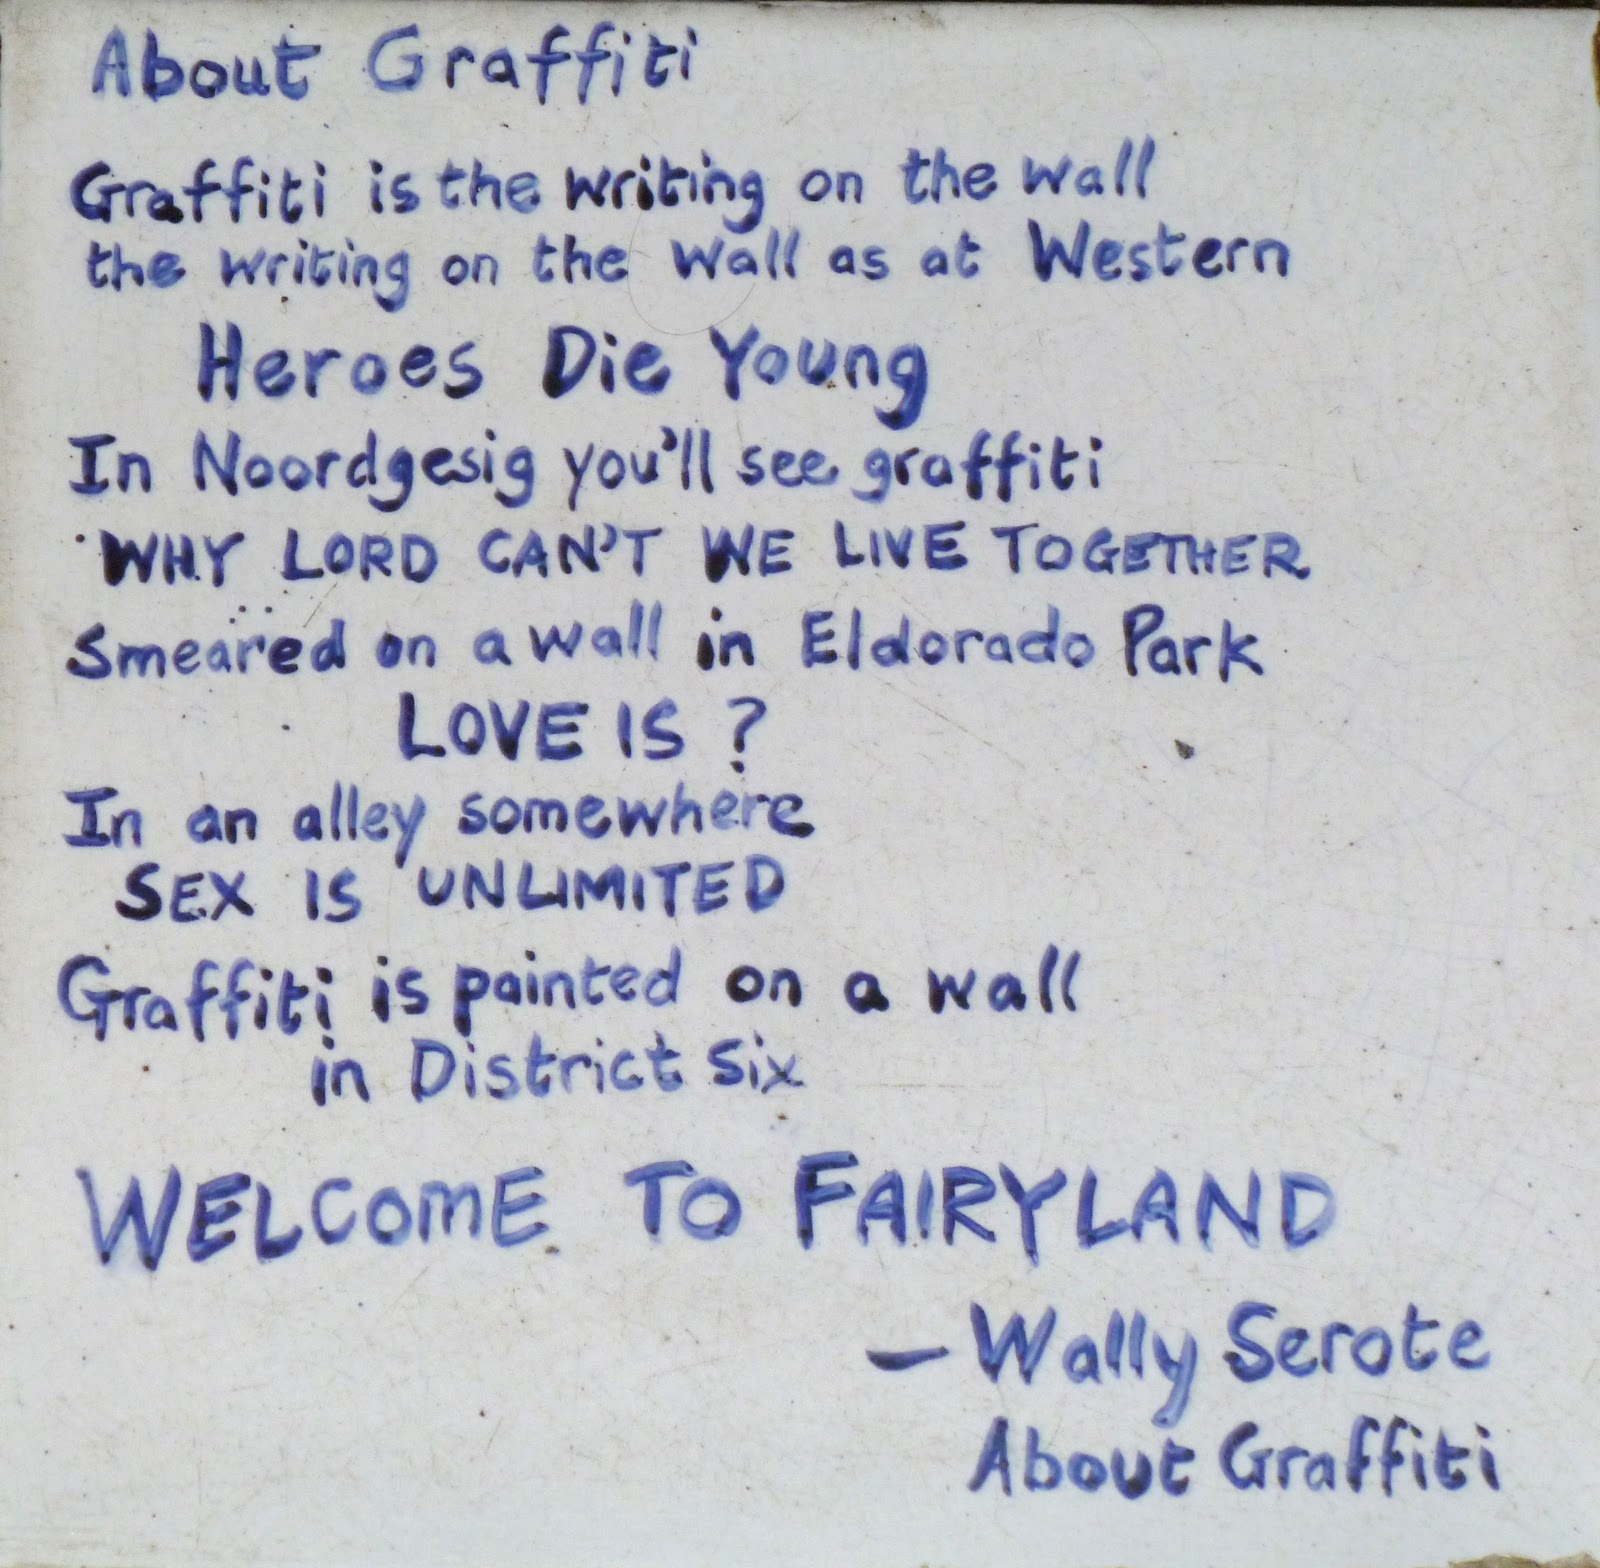 About Graffiti
Graffiti is the writing on the wall
the writing on the wall as at Western
Heroes Die Young
In Noordgesig you'll see graffiti
WHY LORD CAN'T WE LIVE TOGETHER
Smeared on a wall in Eldorado Park
LOVE IS ?
In an alley somewhere
SEX IS UNLIMITED
Graffiti is painted on a wall
in District Six
WELCOME TO FAIRYLAND
— Wally Serote
About Graffiti